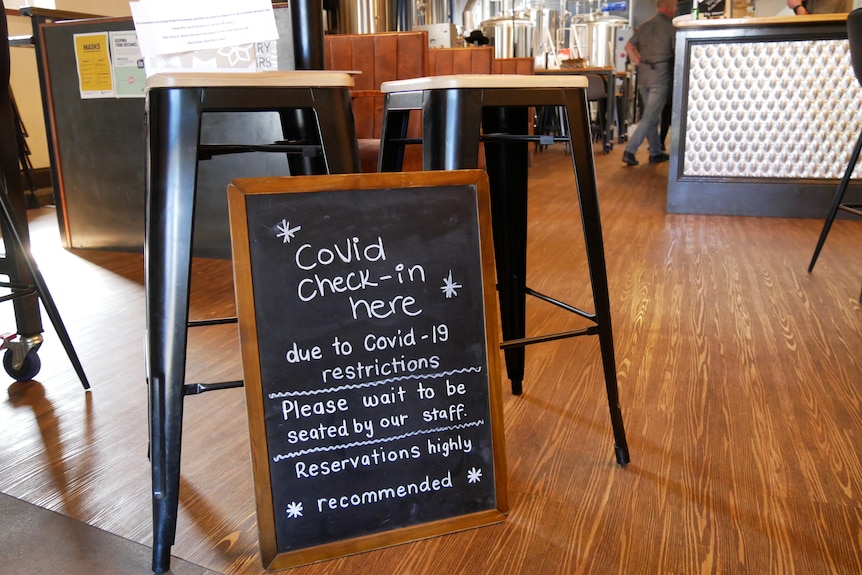 MASKS
Covid
check-in
here
due to Covid-19
restrictions
Please wait to be
seated by our staff.
Reservations highly
recommended